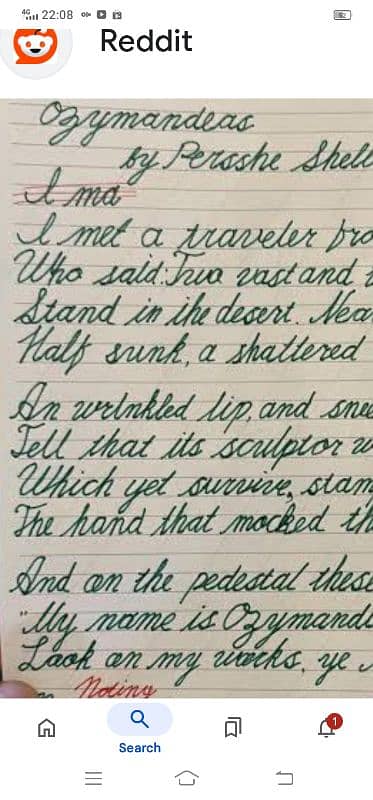 4G 22:08
Reddit
Ozymandeas
by Persshe Shell
I ma
I met a traveler fro
Who said: Two vast and
Stand in the desert. Nea
Half sunk, a shattered
An wrinkled lip, and snee
Tell that its sculptor w
Which yet survive, stam
The hand that mocked th
And on the pedestal these
"My name is Ozymandi
Look on my works, ye
Noting
1
Search